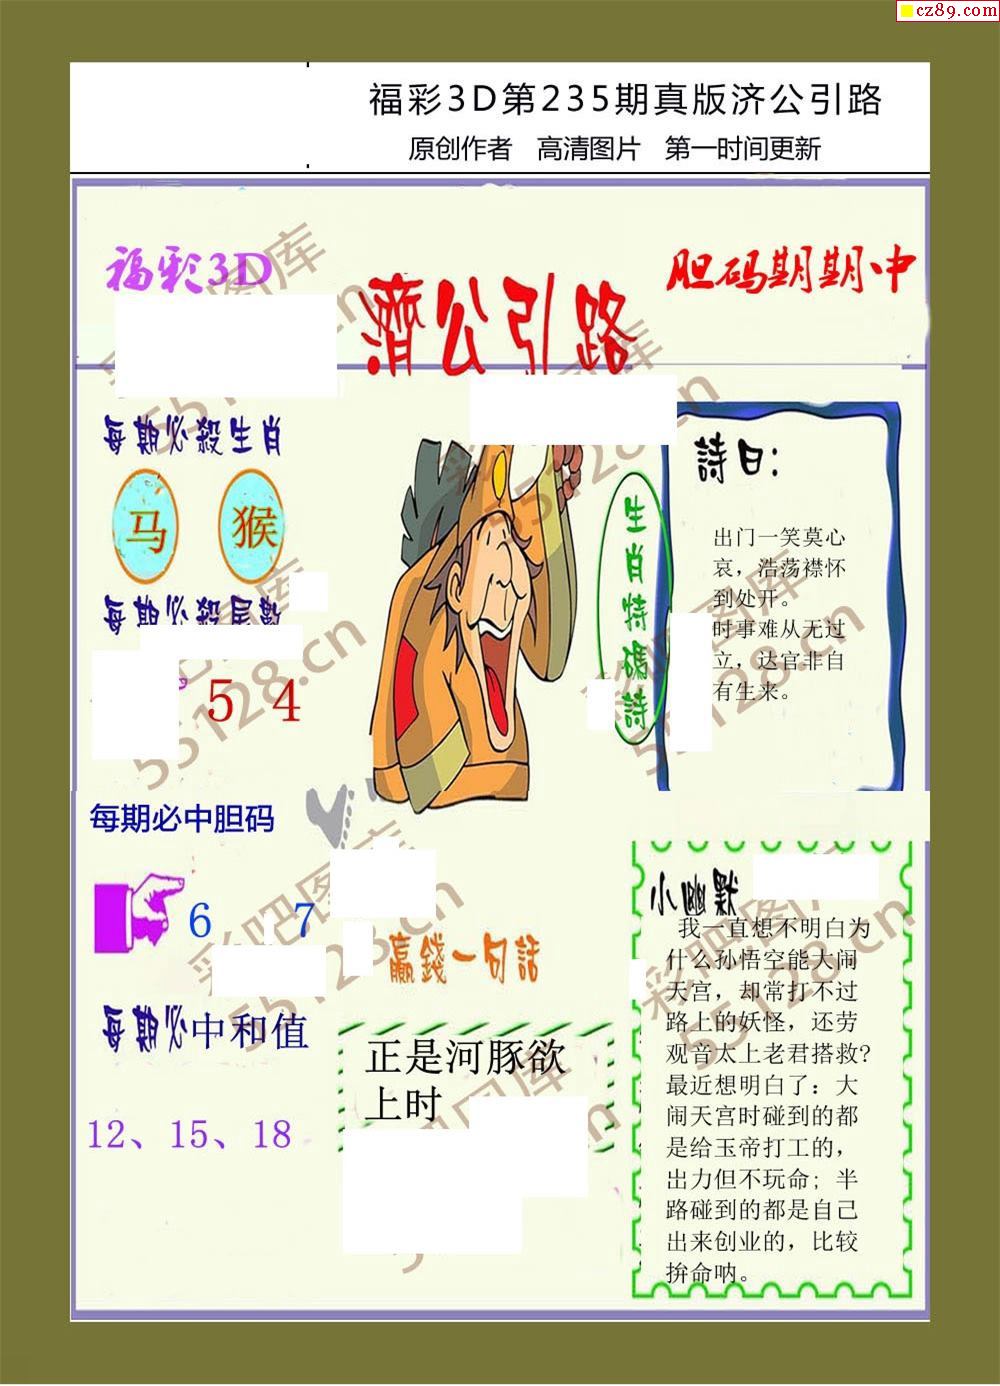 cz89.com
福彩3D第235期真版济公引路
原创作者 高清图片 第一时间更新
福彩3D
濟公引路
胆码期期中
每期必殺生肖
马 猴
每期必殺尾數
5 4
每期必中胆码
6 7
每期必中和值
12、15、18
生肖特碼詩
詩曰:
出门一笑莫心
哀，浩荡襟怀
到处开。
时事难从无过
立，达官非自
有生来。
赢錢一句話
正是河豚欲
上时
小幽默
我一直想不明白为
什么孙悟空能大闹
天宫，却常打不过
路上的妖怪，还劳
观音太上老君搭救?
最近想明白了：大
闹天宫时碰到的都
是给玉帝打工的，
出力但不玩命；半
路碰到的都是自己
出来创业的，比较
拚命呐。
彩吧图库
55128.cn
彩吧图库
55128.cn
彩吧图库
55128.cn
彩吧图库
55128.cn
彩吧图库
55128.cn
彩吧图库
55128.cn